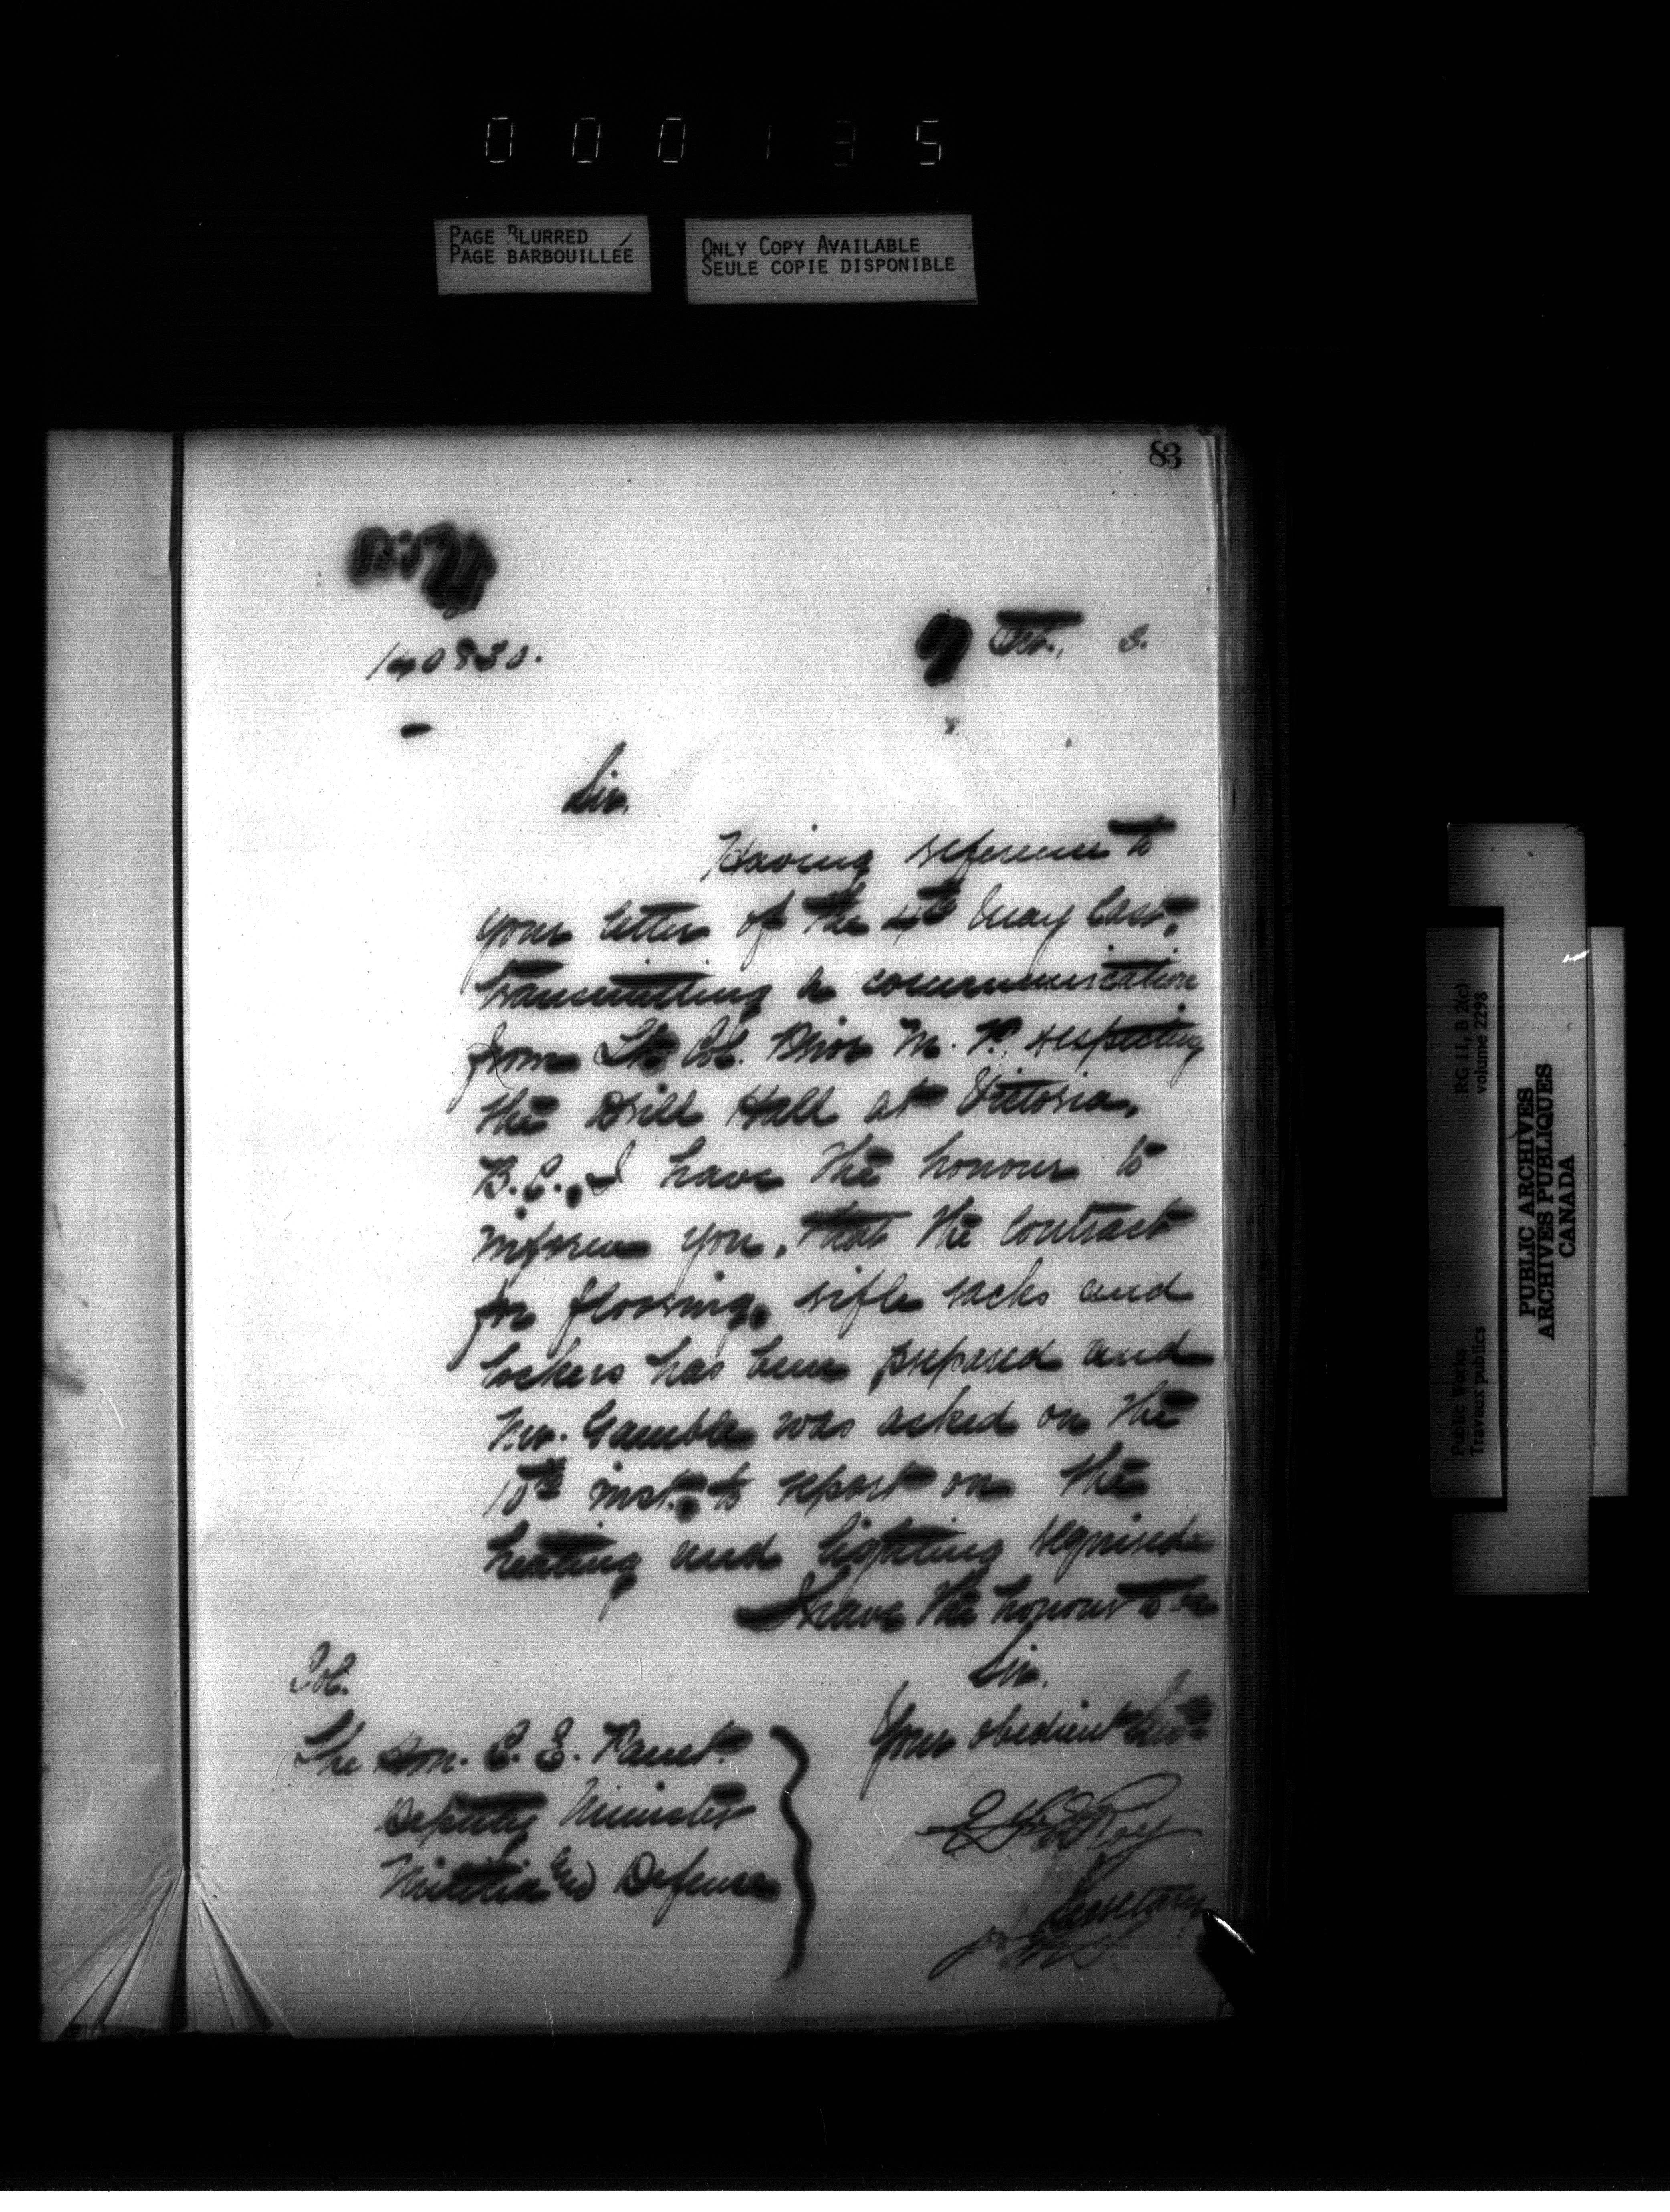 0 0 0 1 3 5
PAGE BLURRED
PAGE BARBOUILLÉE
ONLY COPY AVAILABLE
SEULE COPIE DISPONIBLE
83
140830.
Oct., 3.
Sir,
Having reference to
your letter of the 4th May last,
transmitting a communication
from Lt. Col. Prior M. P. respecting
the Drill Hall at Victoria,
B.C., I have the honour to
inform you, that the contract
for flooring, rifle racks and
lockers has been prepared and
Mr. Gamble was asked on the
10th inst., to report on the
heating and lighting required.
I have the honour to be
Sir,
Your obedient Servt.
E. F. E. Roy
Secretary
Col.
The Hon. C. E. Panet.
Deputy Minister
Militia and Defense
RG 11, B 2(c)
volume 2298
Public Works
Travaux publics
PUBLIC ARCHIVES
ARCHIVES PUBLIQUES
CANADA